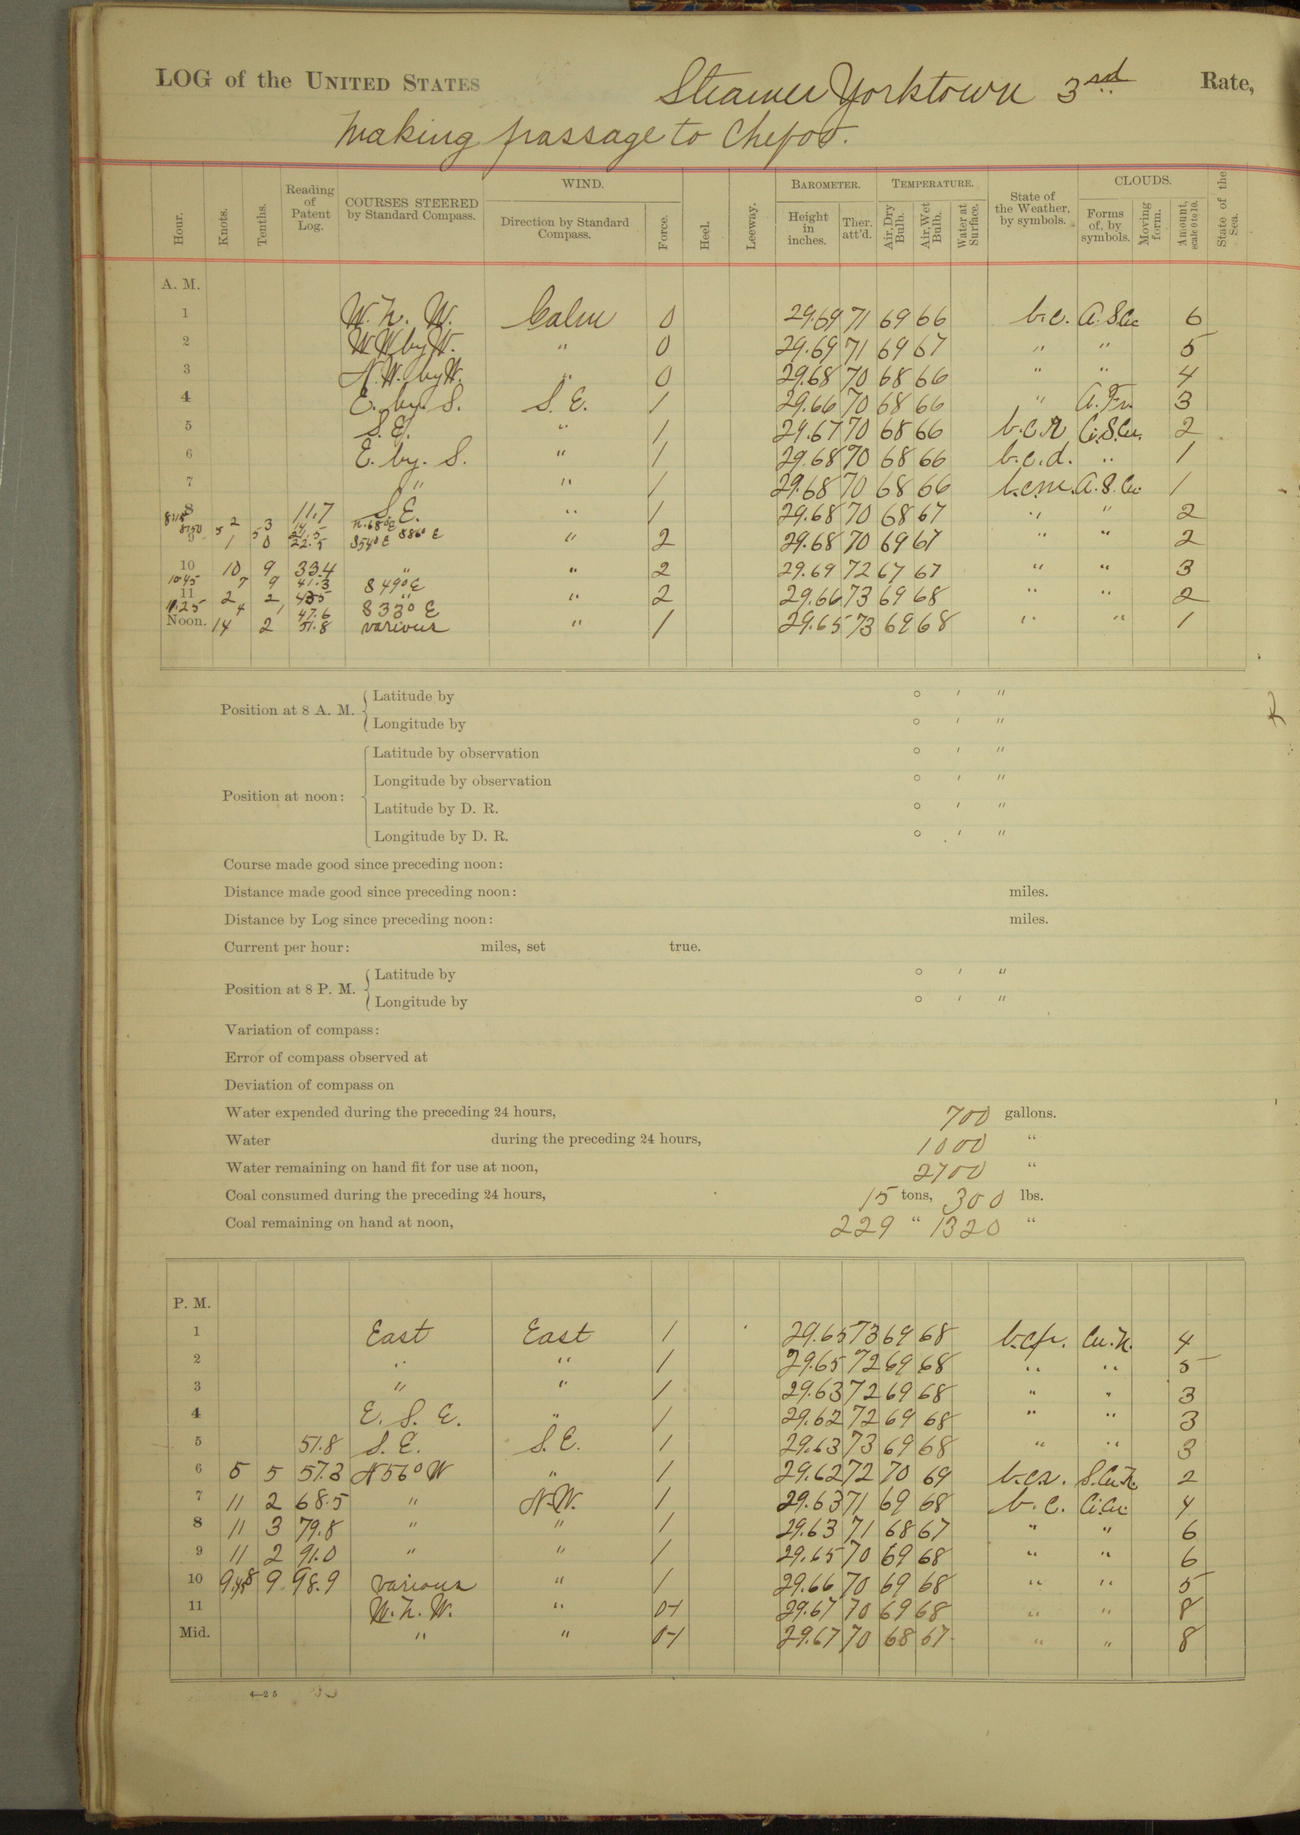 LOG of the UNITED STATES Steamer Yorktown 3rd Rate,
Making passage to Chefoo.
Hour. Knots. Tenths. Reading of Patent Log. COURSES STEERED by Standard Compass. WIND. Direction by Standard Compass. Force. Heel. Leeway. BAROMETER. Height in inches. Ther. att'd. TEMPERATURE. Air, Dry Bulb. Air, Wet Bulb. Water at Surface. State of the Weather, by symbols. CLOUDS. Forms of, by symbols. Moving form. Amount, scale 0 to 10. State of the Sea.
A. M.
1 W. N. W. Calm 0 29.69 71 69 66 b.c. 6
2 " 0 29.69 71 69 67 " " 5
3 N.W. by W. " 0 29.68 70 68 66 " " 4
4 E. by S. S. E. 1 29.66 70 68 66 " 3
5 S.E. " 1 29.67 70 68 66 2
6 E. by. S. " 1 29.68 70 68 66 b.c.d. " 1
7 " " 1 29.68 70 68 66 b.c.m. 1
8 11.7 S.E. " 1 29.68 70 68 67 " " 2
9 1 0 22.5 S54°E S86°E " 2 29.68 70 69 67 " " 2
10 10 9 33.4 " " 2 29.69 72 67 67 " " 3
10 45 7 9 41.3 S 49° E
11 2 2 43.5 " " 2 29.66 73 69 68 " " 2
11.25 4 1 47.6 S 33° E
Noon. 14 2 51.8 various " 1 29.65 73 69 68 " " 1
Position at 8 A. M. Latitude by ° ' "
Longitude by ° ' "
Position at noon: Latitude by observation ° ' "
Longitude by observation ° ' "
Latitude by D. R. ° ' "
Longitude by D. R. ° ' "
Course made good since preceding noon:
Distance made good since preceding noon: miles.
Distance by Log since preceding noon: miles.
Current per hour: miles, set true.
Position at 8 P. M. Latitude by ° ' "
Longitude by ° ' "
Variation of compass:
Error of compass observed at
Deviation of compass on
Water expended during the preceding 24 hours, 700 gallons.
Water during the preceding 24 hours, 1000 "
Water remaining on hand fit for use at noon, 2700 "
Coal consumed during the preceding 24 hours, 15 tons, 300 lbs.
Coal remaining on hand at noon, 229 " 1320 "
P. M.
1 East East 1 29.65 73 69 68 b.c.p. Cu.N. 4
2 " " 1 29.65 72 69 68 " " 5
3 " " 1 29.63 72 69 68 " " 3
4 E. S. E. " 1 29.62 72 69 68 " " 3
5 51.8 S. E. S.E. 1 29.63 73 69 68 " " 3
6 5 5 57.3 N 56° W " 1 29.62 72 70 69 S.Cu.N. 2
7 11 2 68.5 " N.W. 1 29.63 71 69 68 b. c. Ci.Cu. 4
8 11 3 79.8 " " 1 29.63 71 68 67 " " 6
9 11 2 91.0 " " 1 29.65 70 69 68 " " 6
10 9.45 8 9 98.9 various " 1 29.66 70 69 68 " " 5
11 W. N. W. " 0-1 29.67 70 69 68 " " 8
Mid. " " 0-1 29.67 70 68 67 " " 8
4—25